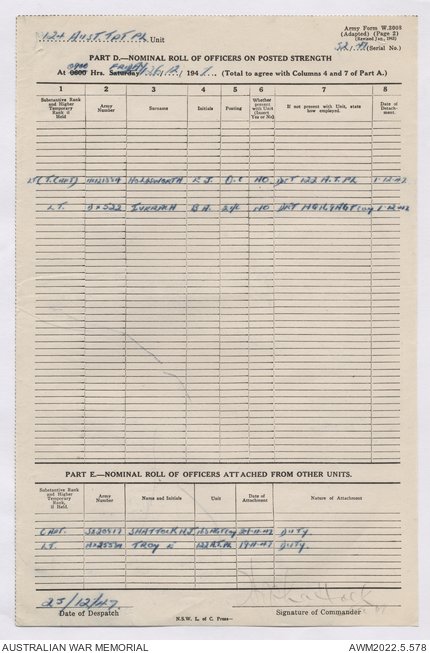 Army Form W.3008
(Adapted) (Page 2)
124 Aust Tpt Pl Unit
(Serial No.)
PART D.—NOMINAL ROLL OF OFFICERS ON POSTED STRENGTH
At 0900 Hrs. Saturday 194 (Total to agree with Columns 4 and 7 of Part A.)
1 2 3 4 5 6 7 8
Substantive Rank and Higher Temporary Rank if Held
Army Number
Surname
Initials
Posting
Whether present with Unit (Insert Yes or No)
If not present with Unit, state how employed.
Date of Detachment.
LT (T. CAPT) HOLDSWORTH O.C NO DET 122 A.T. PL 1-12-47
LT. B A. NO DET 1-12-47
PART E.—NOMINAL ROLL OF OFFICERS ATTACHED FROM OTHER UNITS.
Substantive Rank and Higher Temporary Rank, if Held.
Army Number
Name and Initials
Unit
Date of Attachment
Nature of Attachment
CAPT. SHATTOCK H.J. 24-11-47 DUTY.
LT. TROY E 122 A.T. PL 19-11-47 DUTY.
25/12/47
Date of Despatch
Signature of Commander
N.S.W. L. of C. Press—
AUSTRALIAN WAR MEMORIAL
AWM2022.5.578